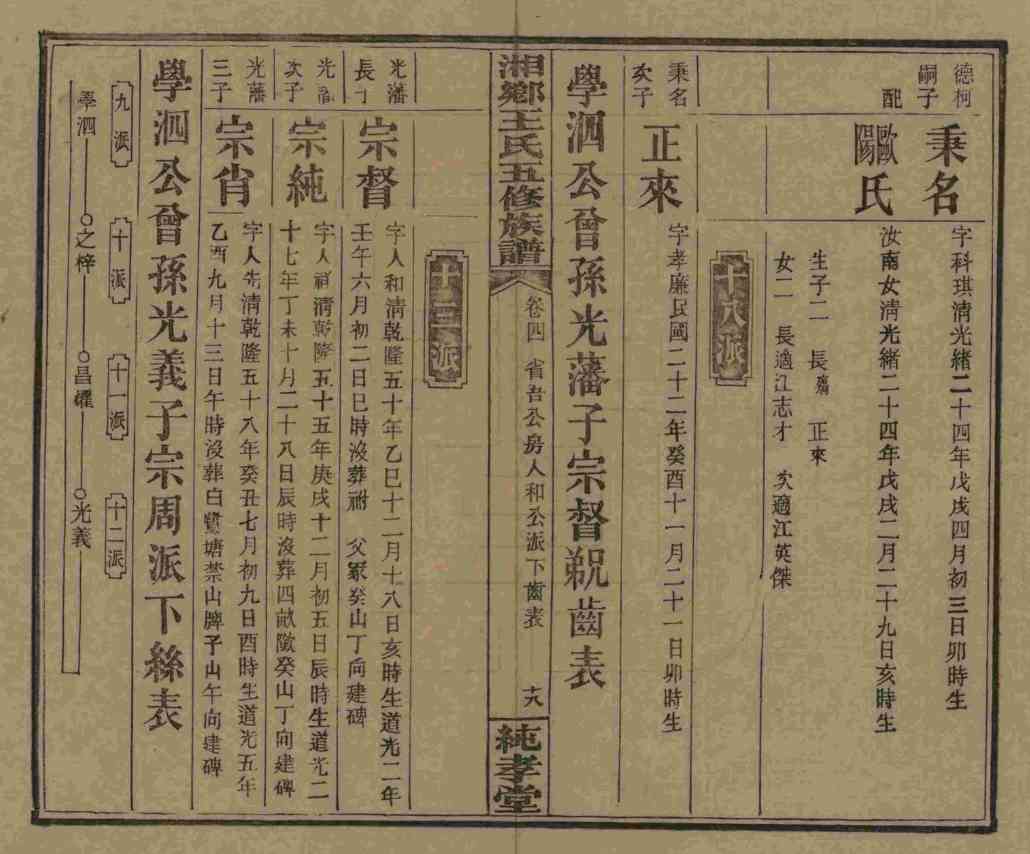 德柯
嗣子
秉名
字科琪清光緒二十四年戊戌四月初三日卯時生
配
歐陽氏
汝南女清光緒二十四年戊戌二月二十九日亥時生
生子二 長殤 正來
女二 長適江志才 次適江英傑
十八派
秉名
次子
正來
字孝廉民國二十二年癸酉十一月二十一日卯時生
學泗公曾孫光藩子宗督
齒表
湘鄉王氏五修族譜
卷四 省吾公房人和公派下齒表
十八
純孝堂
十三派
光藩
長子
宗督
字人和清乾隆五十年乙巳十二月十八日亥時生道光二年
壬午六月初二日巳時沒葬祔 父冢癸山丁向建碑
光藩
次子
宗純
字人禎清乾隆五十五年庚戌十二月初五日辰時生道光二
十七年丁未十月二十八日辰時沒葬四畝墩癸山丁向建碑
光藩
三子
宗肖
字人先清乾隆五十八年癸丑七月初九日酉時生道光五年
乙酉九月十三日午時沒葬白鷺塘禁山牌子山午向建碑
學泗公曾孫光義子宗周派下絲表
九派
十派
十一派
十二派
學泗
之梓
昌耀
光義